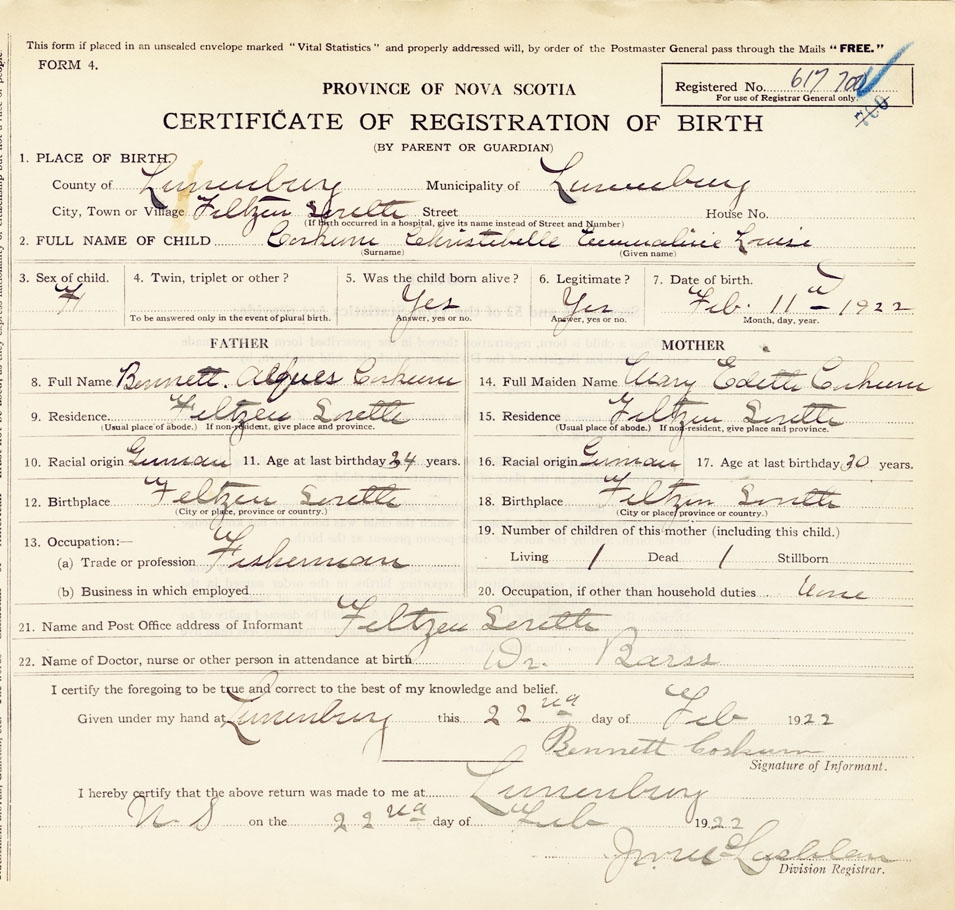 This form if placed in an unsealed envelope marked "Vital Statistics" and properly addressed will, by order of the Postmaster General pass through the Mails "FREE."
FORM 4.
PROVINCE OF NOVA SCOTIA
Registered No. 617 700
For use of Registrar General only.
760
CERTIFICATE OF REGISTRATION OF BIRTH
(BY PARENT OR GUARDIAN)
1. PLACE OF BIRTH?
County of Lunenburg Municipality of Lunenburg
City, Town or Village Feltzen Street House No.
(If birth occurred in a hospital, give its name instead of Street and Number)
2. FULL NAME OF CHILD Corkum Christibelle Emmaline Louise
(Surname) (Given name)
3. Sex of child. 4. Twin, triplet or other? 5. Was the child born alive? 6. Legitimate? 7. Date of birth.
F Yes Yes Feb. 11th 1922
To be answered only in the event of plural birth. Answer, yes or no. Answer, yes or no. Month, day, year.
FATHER MOTHER
8. Full Name Bennett Corkum 14. Full Maiden Name Mary Corkum
9. Residence. Feltzen 15. Residence Feltzen
(Usual place of abode.) If non-resident, give place and province. (Usual place of abode.) If non-resident, give place and province.
10. Racial origin German 11. Age at last birthday 24 years. 16. Racial origin German 17. Age at last birthday 30 years.
12. Birthplace Feltzen 18. Birthplace Feltzen
(City or place, province or country.) (City or place, province or country.)
13. Occupation:— 19. Number of children of this mother (including this child.)
(a) Trade or profession Fisherman Living 1 Dead 1 Stillborn
(b) Business in which employed 20. Occupation, if other than household duties None
21. Name and Post Office address of Informant Feltzen
22. Name of Doctor, nurse or other person in attendance at birth Dr. Barss
I certify the foregoing to be true and correct to the best of my knowledge and belief.
Given under my hand at Lunenburg this 22nd day of Feb 1922
Bennett Corkum
Signature of Informant.
I hereby certify that the above return was made to me at Lunenburg
N. S on the 22nd day of Feb 1922
Division Registrar.